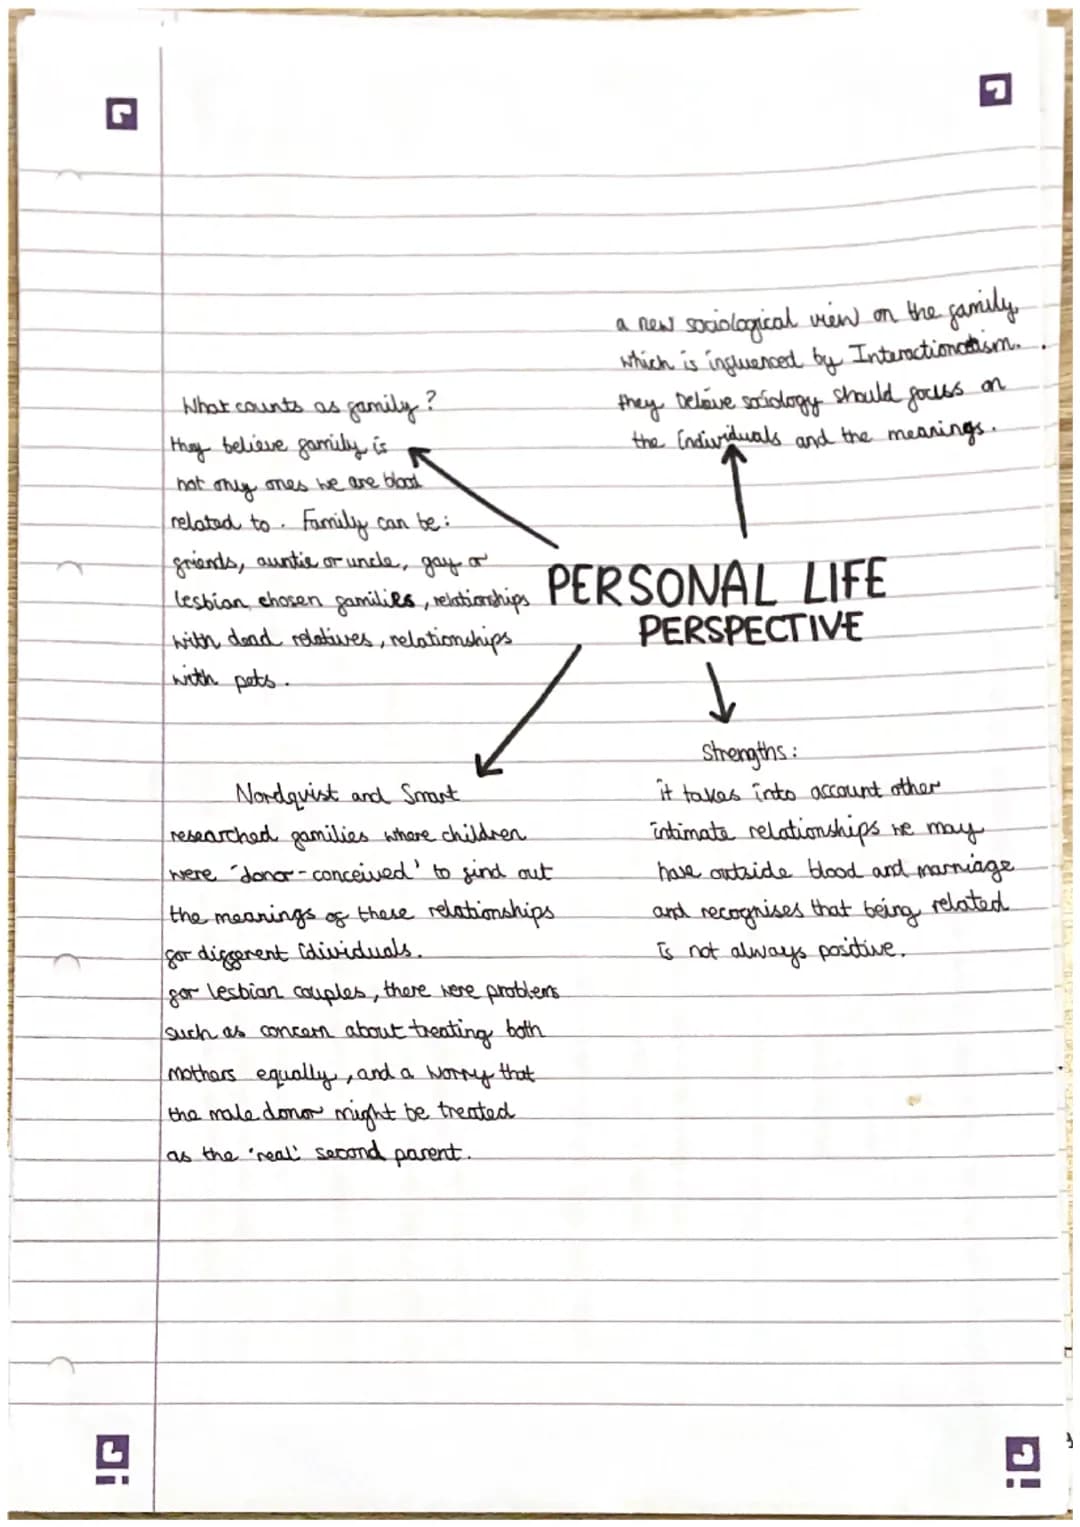 a new sociological view on the family,
which is influenced by Interactionatism.
they beleive sociology should focuss on
the individuals and the meanings.
What counts as family?
they believe family is
not only ones we are blood
related to. Family can be:
friends, auntie or uncle, gay or
lesbian, chosen families, relationships
with dead relatives, relationships
with pets.
PERSONAL LIFE
PERSPECTIVE
Nordqvist and Smart
researched families where children
were 'donor-conceived' to find out
the meanings of these relationships
for different idividuals.
for lesbian couples, there were problems
such as concern about treating both
mothers equally, and a worry that
the male donor might be treated
as the 'real' second parent.
Strengths:
it takes into account other
intimate relationships we may
have outside blood and marriage
and recognises that being related
is not always positive.